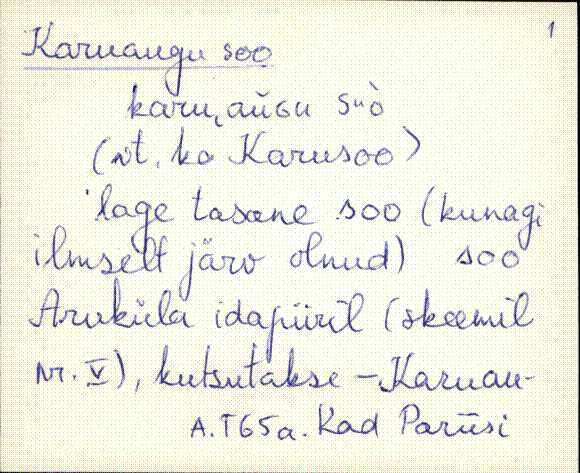 1
Karuaugu soo
karu,aùGu suò
(vt. ka Karusoo)
lage tasane soo (kunagi
ilmselt järv olnud) soo
Aruküla idapiiril (skeemil
nr. V), kutsutakse – Karuau-
A.T65a. Kad Pariisi